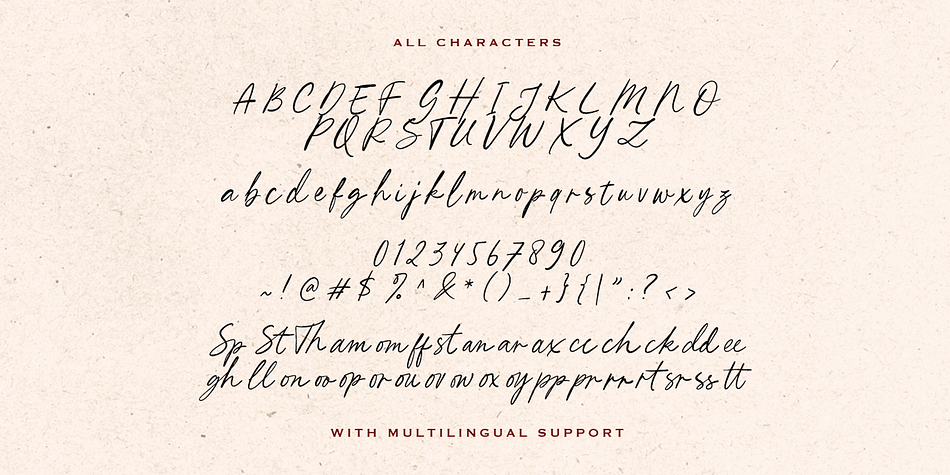 ALL CHARACTERS
A B C D E F G H I J K L M N O
P Q R S T U V W X Y Z
a b c d e f g h i j k l m n o p q r s t u v w x y z
0 1 2 3 4 5 6 7 8 9 0
~ ! @ # $ % ^ & * ( ) _ + } { | " : ? < >
Sp St Th am om ff st an ar ax cc ch ck dd ee
gh ll on oo op or ou ov ow ox oy pp pr rr rt sr ss tt
WITH MULTILINGUAL SUPPORT